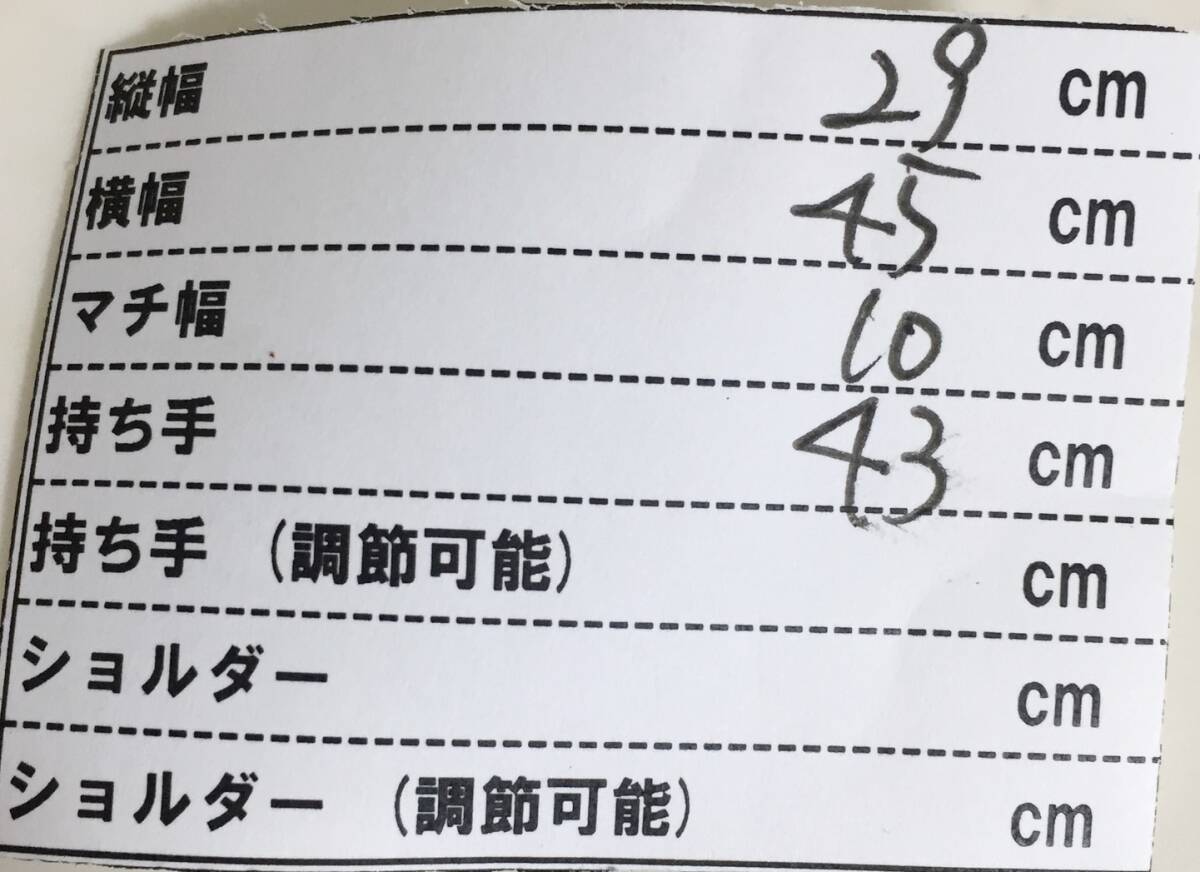 縦幅 29 cm
横幅 45 cm
マチ幅 10 cm
持ち手 43 cm
持ち手 (調節可能) cm
ショルダー cm
ショルダー (調節可能) cm